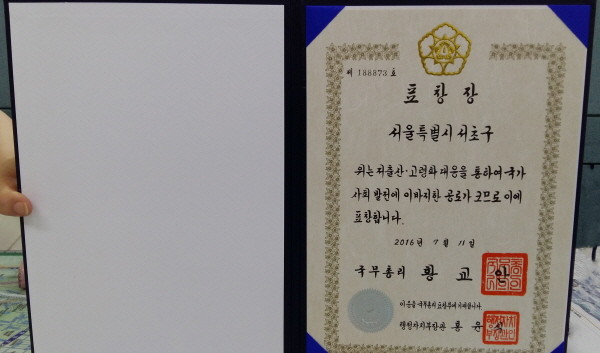 제 188873 호
표 창 장
서울특별시 서초구
위는 저출산·고령화 대응을 통하여 국가
사회 발전에 이바지한 공로가 크므로 이에
표창합니다.
2016년 7월 11일
국무총리 황교안
이 증을 국무총리 표창부에 기재합니다.
행정자치부장관 홍윤식